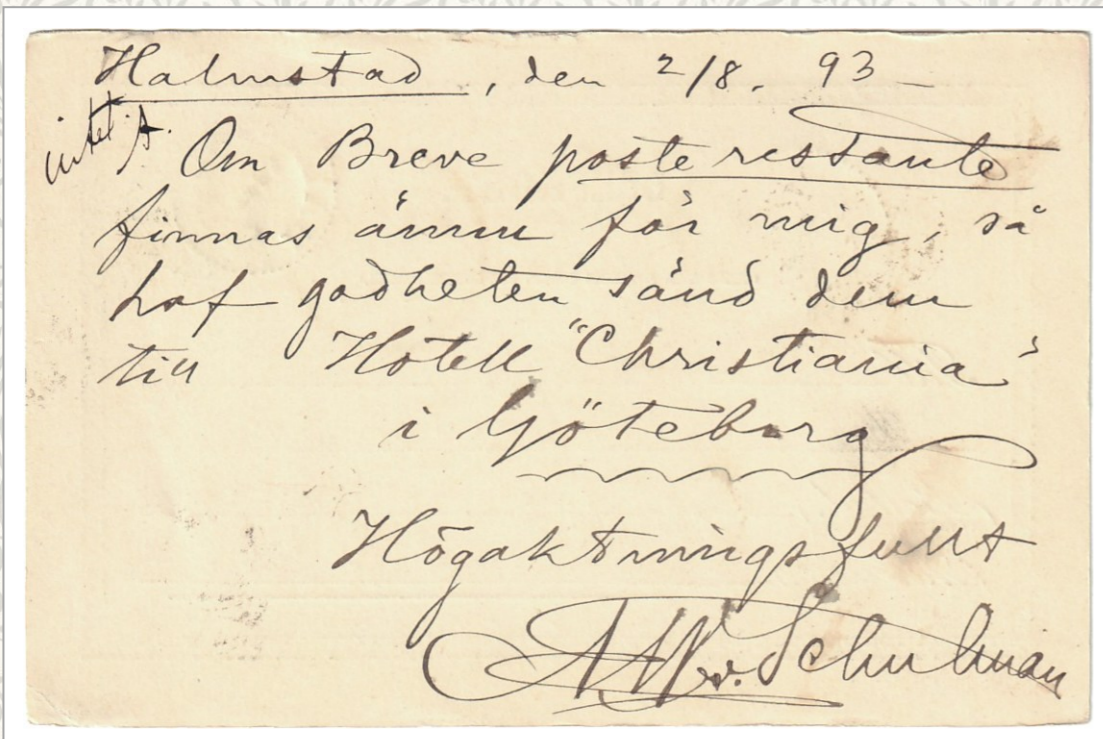 Halmstad, den 2/8. 93 –
intet A.
Om Breve poste restante
finnas ännu för mig, så
haf godheten sänd dem
till Hotell "Christiania"
i Göteborg
Högaktningsfullt
v. Schulman